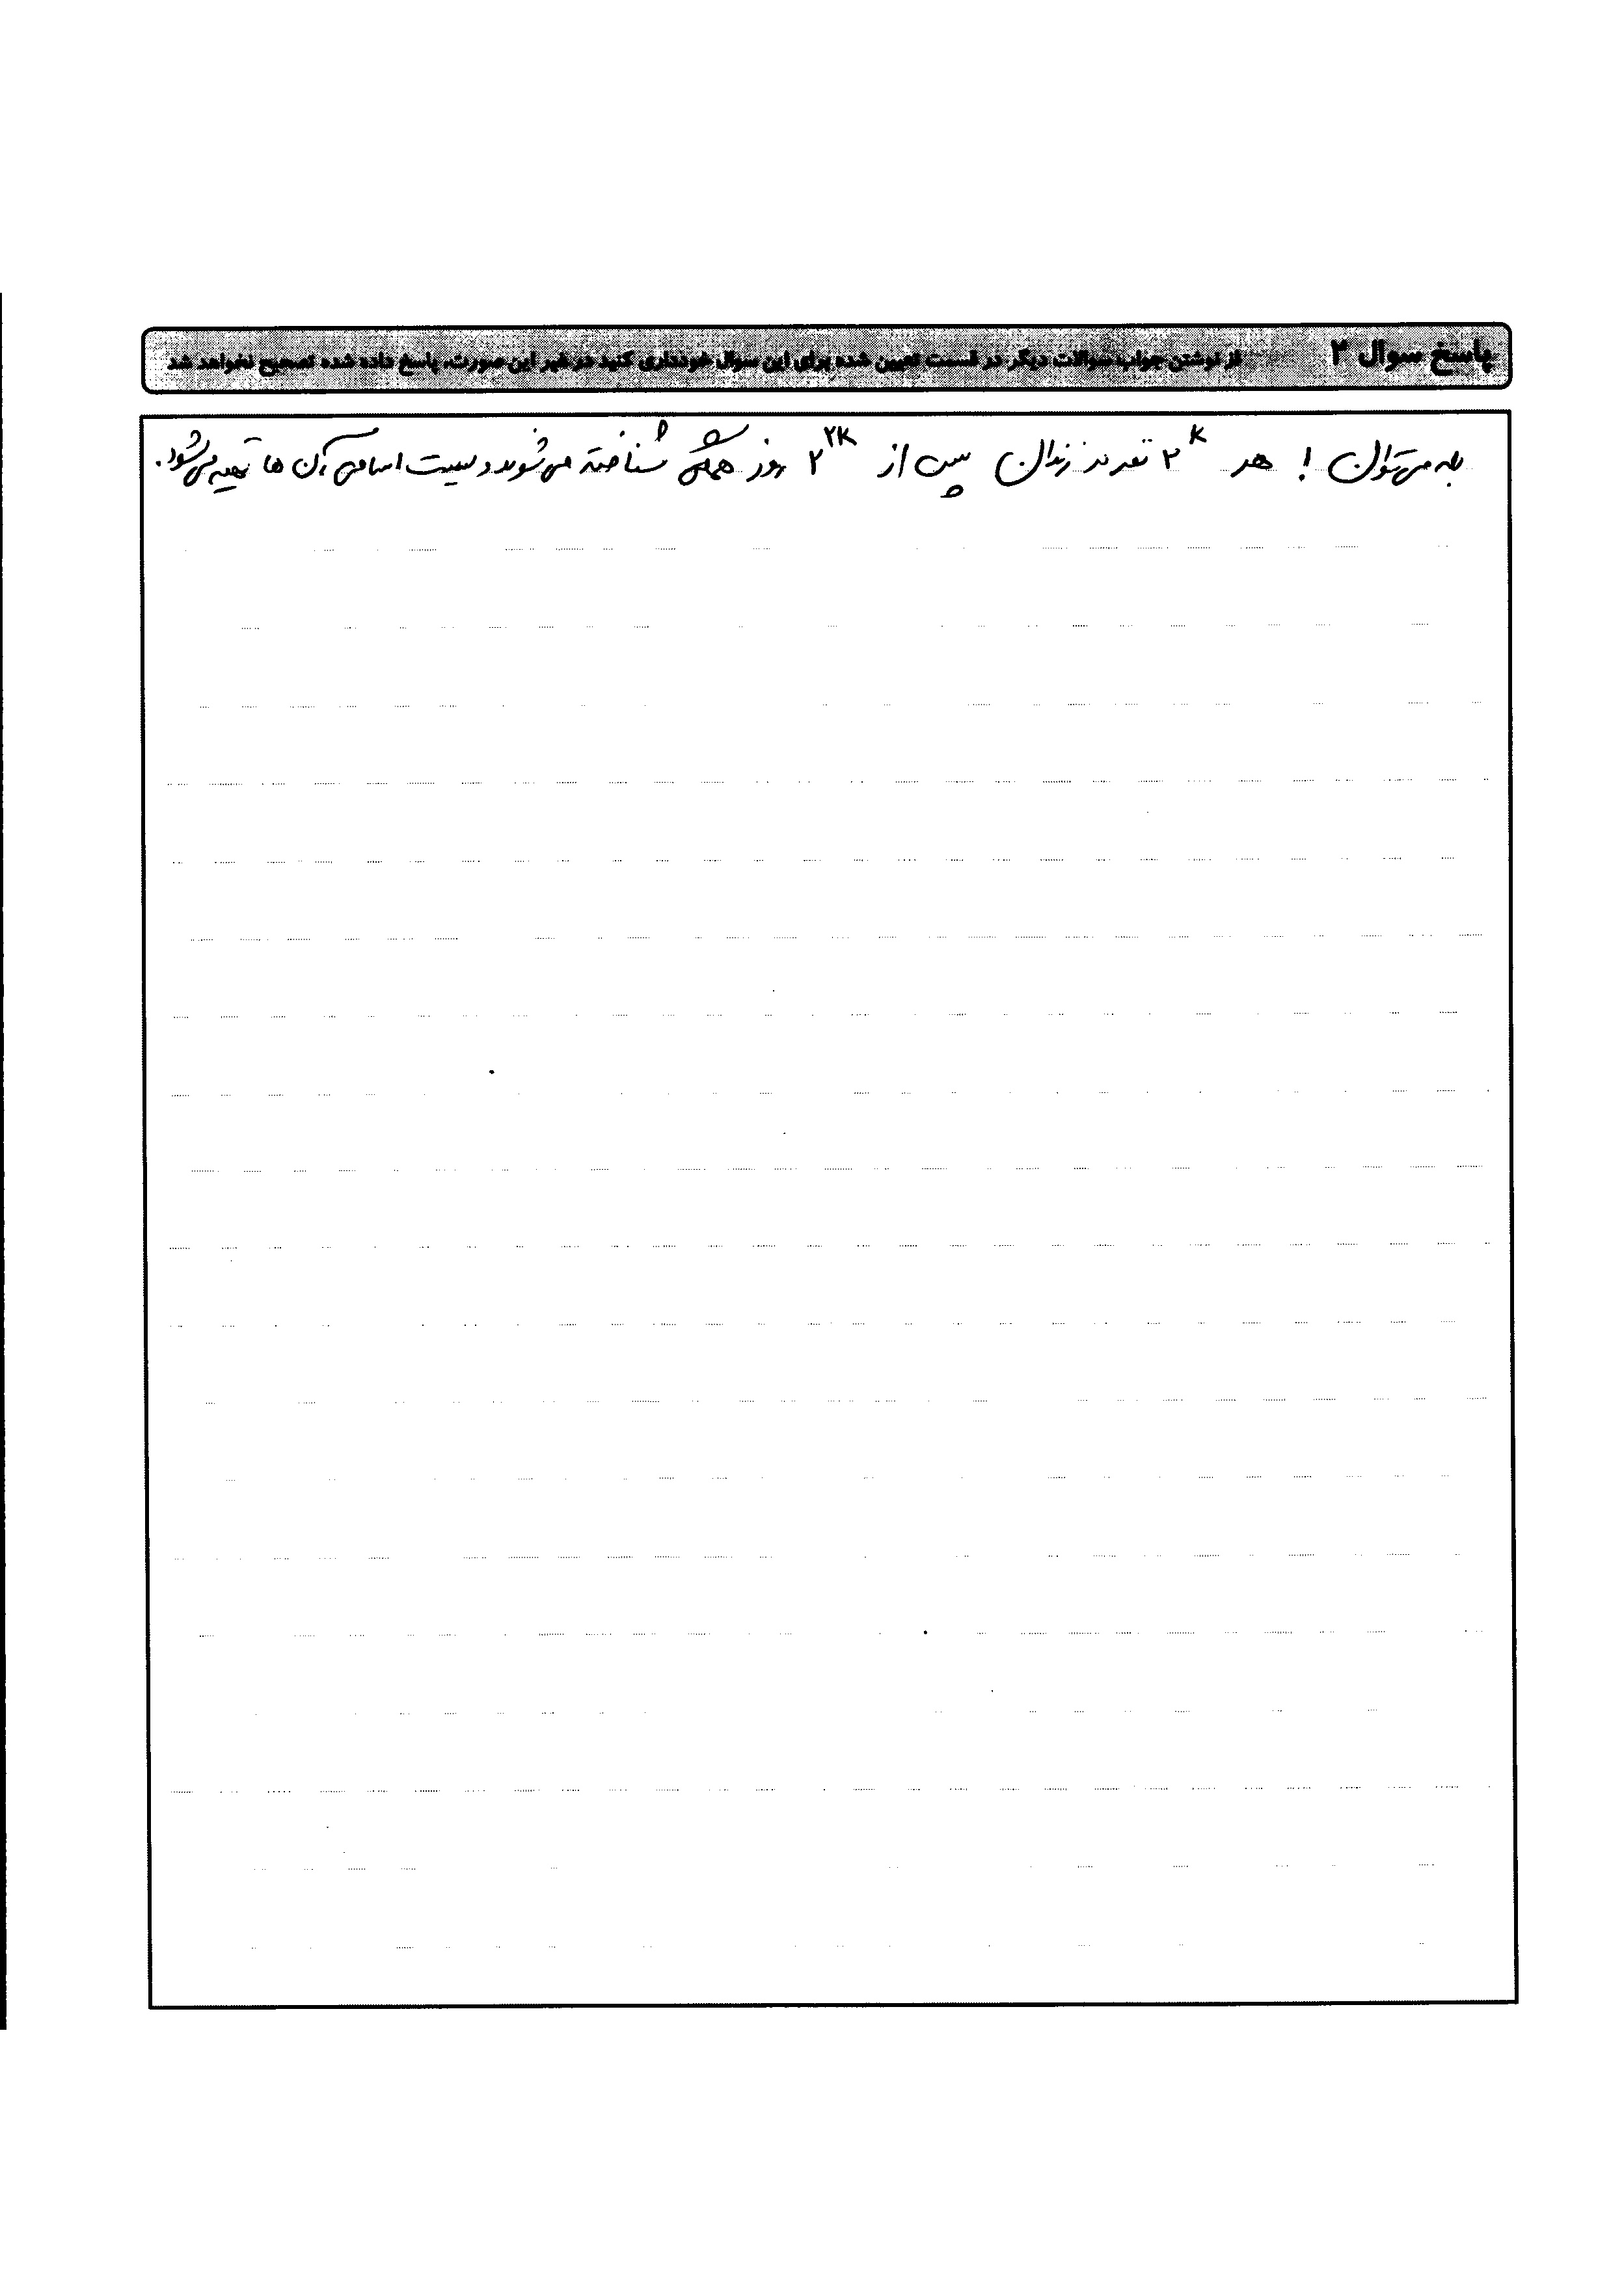 پاسخ سوال ۲ از نوشتن جواب سوالات دیگر در قسمت تعیین شده برای این سوال خودداری کنید در غیر این صورت، پاسخ داده شده تصحیح نخواهد شد
بله می‌توان! هر ۲^K نفر در زندان پس از ۲^۲K روز همگی شناخته می‌شوند و لیست اسامی آن ها تهیه می‌شود.